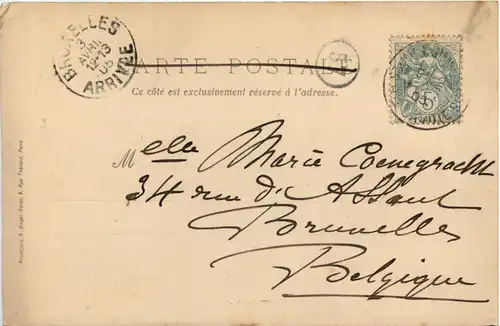 BRUXELLES
3
AVRIL
12-13
05
ARRIVÉE
CARTE POSTALE
Ce côté est exclusivement réservé à l'adresse.
Melle Marie Coenegracht
34 rue d'Assaut
Bruxelles
Belgique